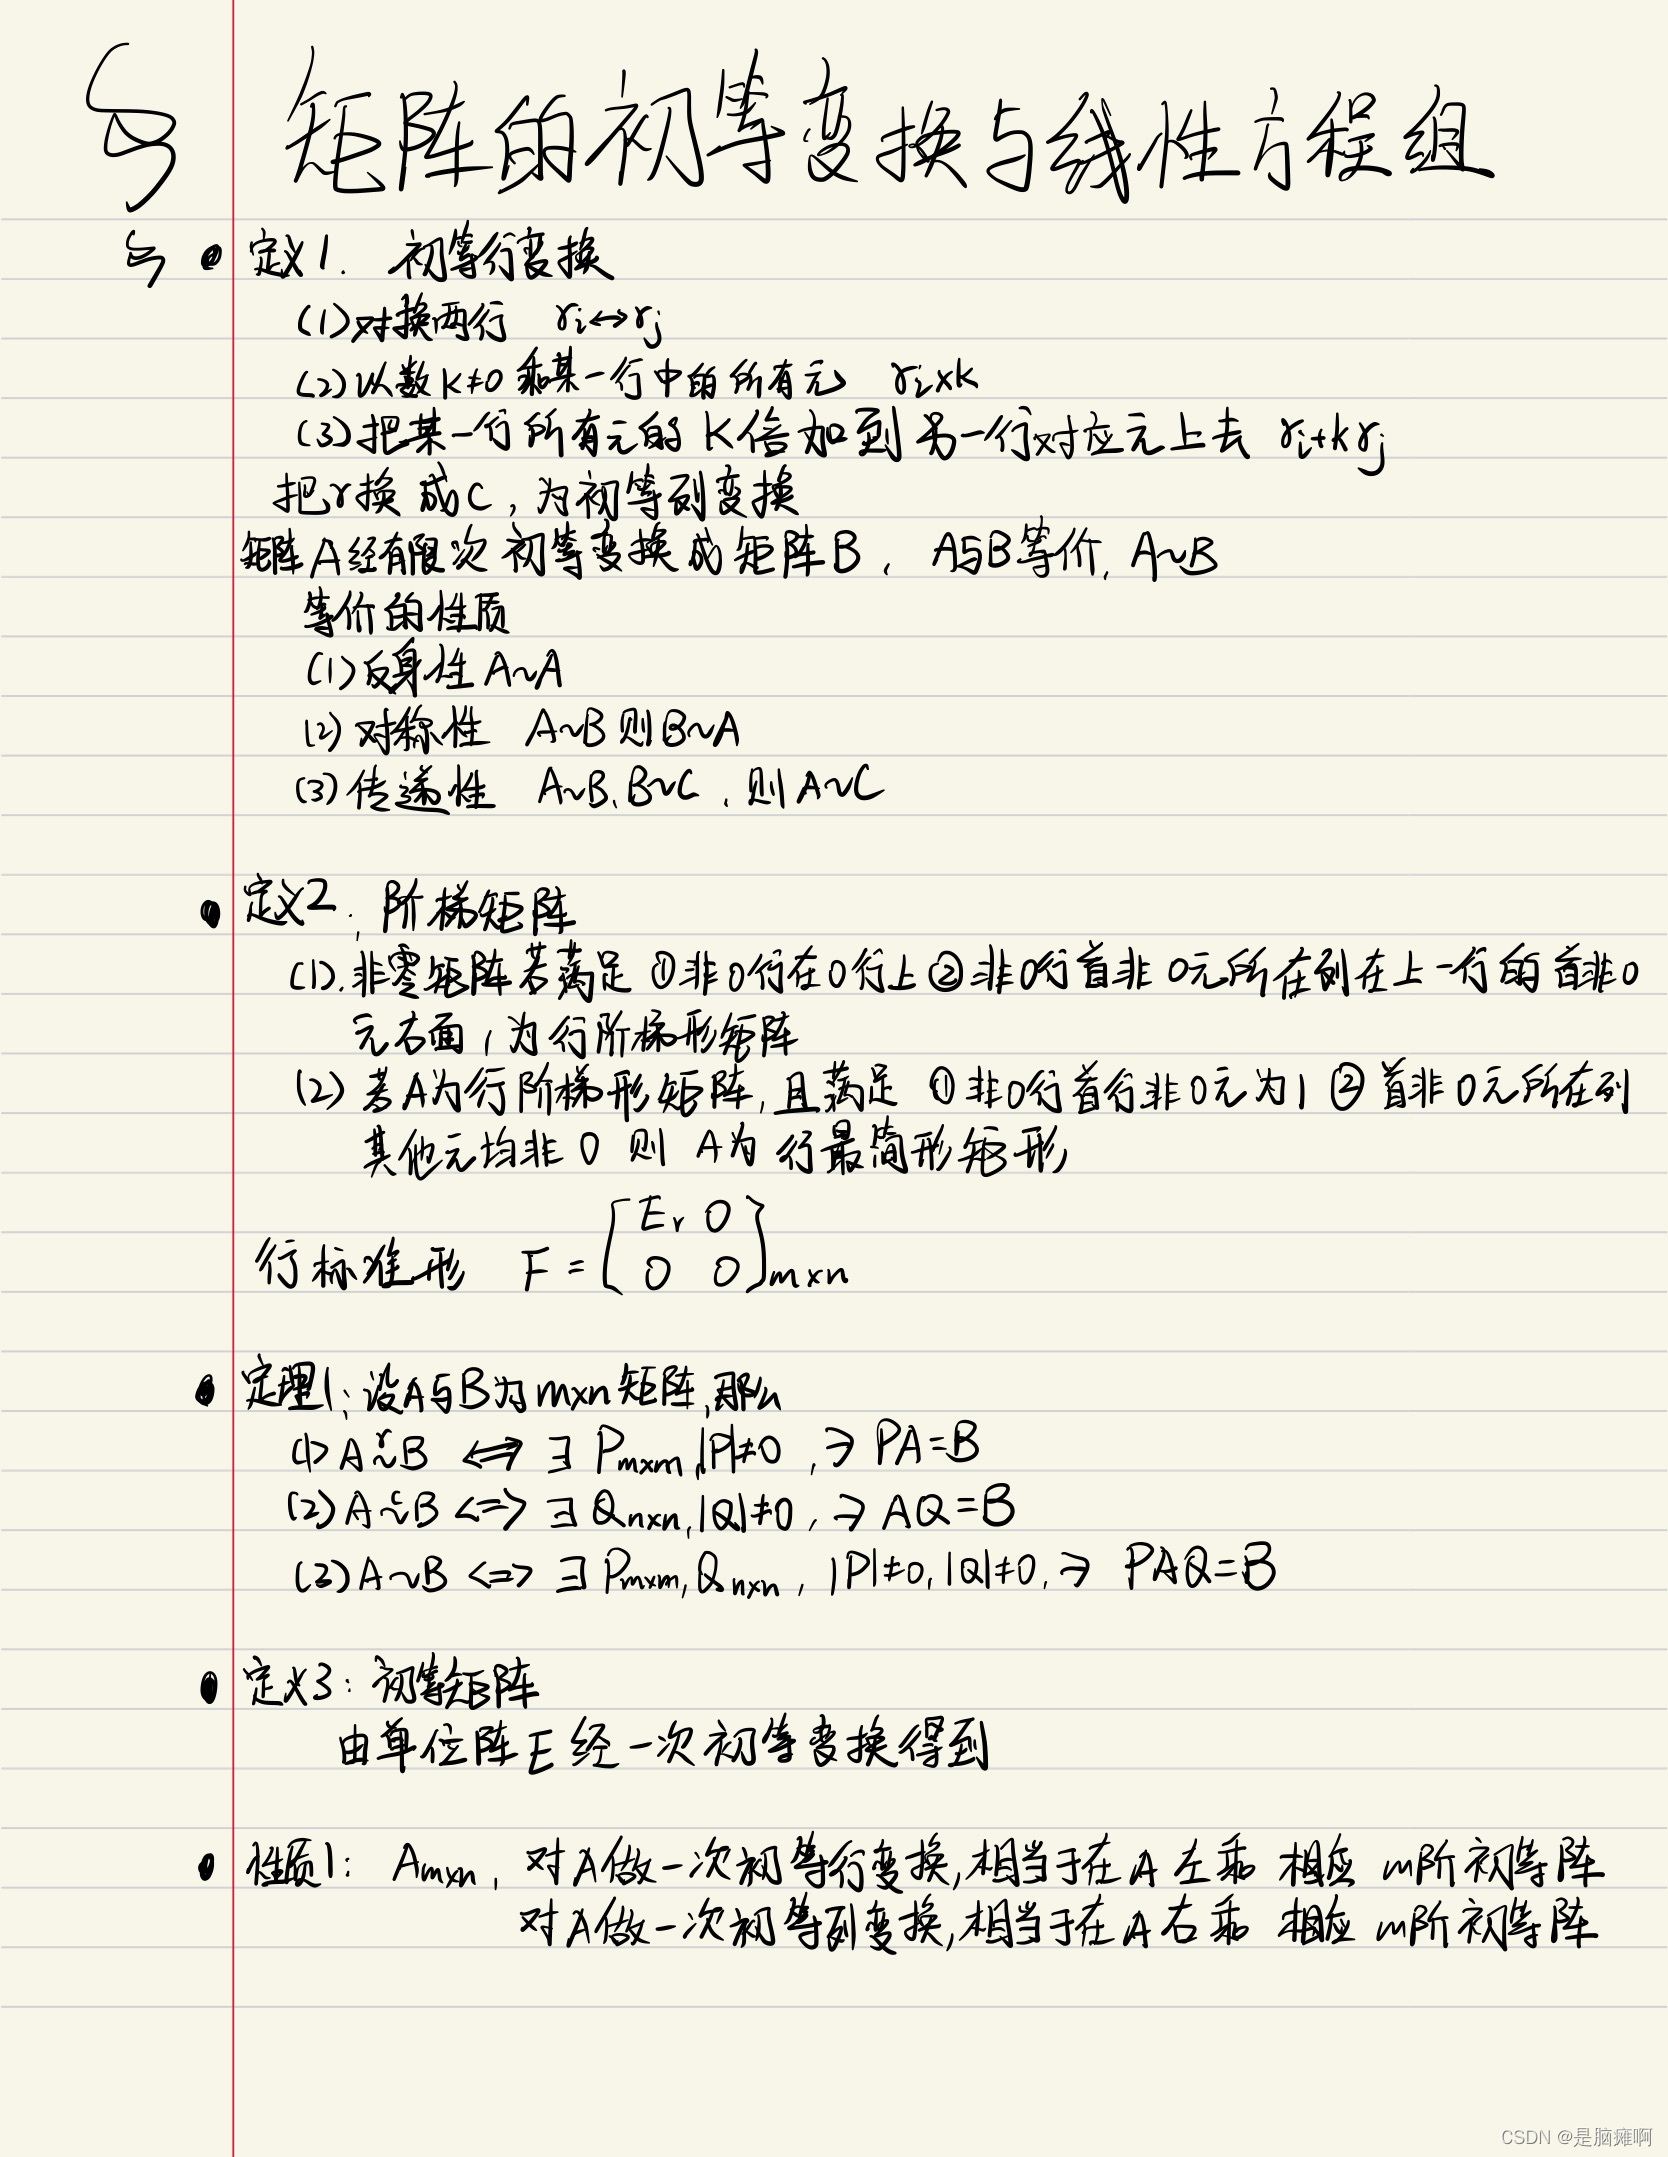 § 矩阵的初等变换与线性方程组
§ • 定义1. 初等行变换
(1)对换两行 ri↔rj
(2)以数K≠0乘某一行中的所有元 ri×k
(3)把某一行所有元的K倍加到另一行对应元上去 ri+krj
把r换成C,为初等列变换
矩阵A经有限次初等变换成矩阵B, A与B等价, A~B
等价的性质
(1)反身性 A~A
(2)对称性 A~B则B~A
(3)传递性 A~B,B~C,则A~C
• 定义2: 阶梯矩阵
(1).非零矩阵若满足 ①非0行在0行上②非0行首非0元所在列在上一行的首非0
元右面,为行阶梯形矩阵
(2) 若A为行阶梯形矩阵,且满足 ①非0行首行非0元为1 ②首非0元所在列
其他元均非0 则 A为行最简形矩形
行标准形 F = [Er 0
0 0]m×n
• 定理1:设A与B为m×n矩阵,那么
(1) A r~ B ⟺ ∃ Pm×m,|P|≠0,∋ PA=B
(2) A c~ B <=> ∃ Qn×n,|Q|≠0,∋ AQ=B
(3) A~B <=> ∃ Pm×m,Qn×n,|P|≠0,|Q|≠0,∋ PAQ=B
• 定义3:初等矩阵
由单位阵E经一次初等变换得到
• 性质1: Am×n, 对A做一次初等行变换,相当于在A左乘 相应 m阶初等阵
对A做一次初等列变换,相当于在A右乘 相应 m阶初等阵
CSDN @是脑瘫啊